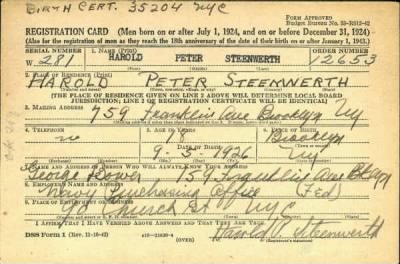 BIRTH CERT. 35204 NYC
FORM APPROVED
REGISTRATION CARD (Men born on or after July 1, 1924, and on or before December 31, 1924)
(Also for the registration of men as they reach the 18th anniversary of the date of their birth on or after January 1, 1943.)
SERIAL NUMBER 1. NAME (Print) ORDER NUMBER
W 281 HAROLD PETER STEENWERTH 12653
2. PLACE OF RESIDENCE (Print)
HAROLD PETER STEENWERTH
[THE PLACE OF RESIDENCE GIVEN ON LINE 2 ABOVE WILL DETERMINE LOCAL BOARD
JURISDICTION; LINE 2 OF REGISTRATION CERTIFICATE WILL BE IDENTICAL]
3. MAILING ADDRESS
759 Franklin Ave Brooklyn Ny
4. TELEPHONE 5. AGE IN YEARS 6. PLACE OF BIRTH
no 18 Brooklyn
9-5-1926
7. NAME AND ADDRESS OF PERSON WHO WILL ALWAYS KNOW YOUR ADDRESS
George Franklin Ave
8. EMPLOYER'S NAME AND ADDRESS
Navy Purchasing Office (Fed)
9. PLACE OF EMPLOYMENT OR BUSINESS
90 Church St NYC
I AFFIRM THAT I HAVE VERIFIED ABOVE ANSWERS AND THAT THEY ARE TRUE.
DSS Form 1 (Rev. 11-16-42)
Harold P. Steenwerth